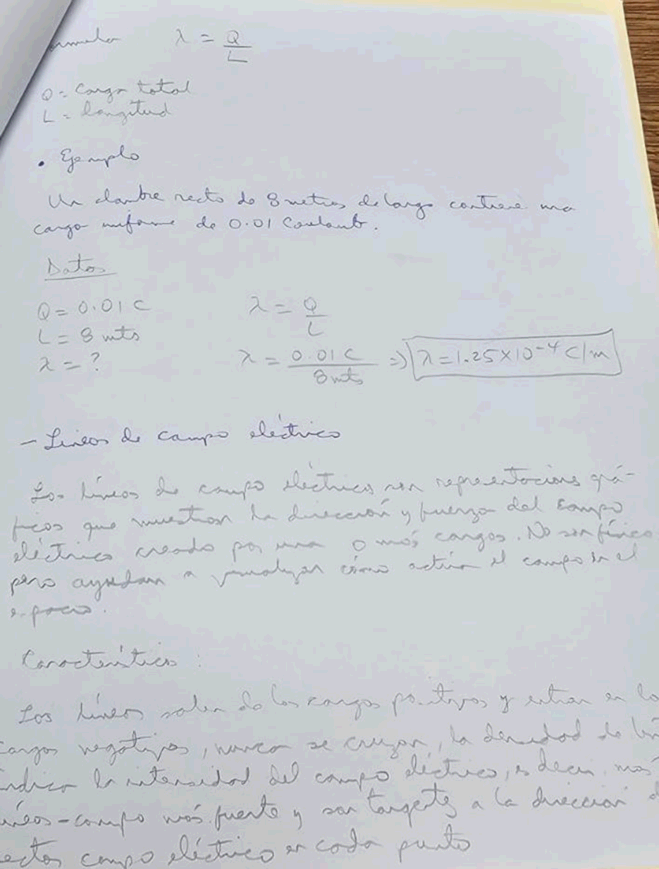 λ = Q/L
Q = Carga total
L = longitud
• Ejemplo
Un alambre recto de 8 metros de largo contiene una
carga uniforme de 0.01 Coulomb.
Datos
Q = 0.01 C λ = Q/L
L = 8 mts
λ = ? λ = 0.01 C/8 mts => λ = 1.25 x 10-4 C/m
- Líneas de campo eléctrico
Las líneas de campo eléctrico son representaciones grá-
ficas que muestran la dirección y fuerza del campo
eléctrico creado por una o más cargas. No son físico
pero ayudan a visualizar cómo actúa el campo en el
espacio.
Características:
Las líneas salen de las cargas positivas y entran en la
cargas negativas, nunca se cruzan, la densidad de
indica la intensidad del campo eléctrico, es decir, más
líneas-campo más fuerte y son tangentes a la dirección
campo eléctrico en cada punto